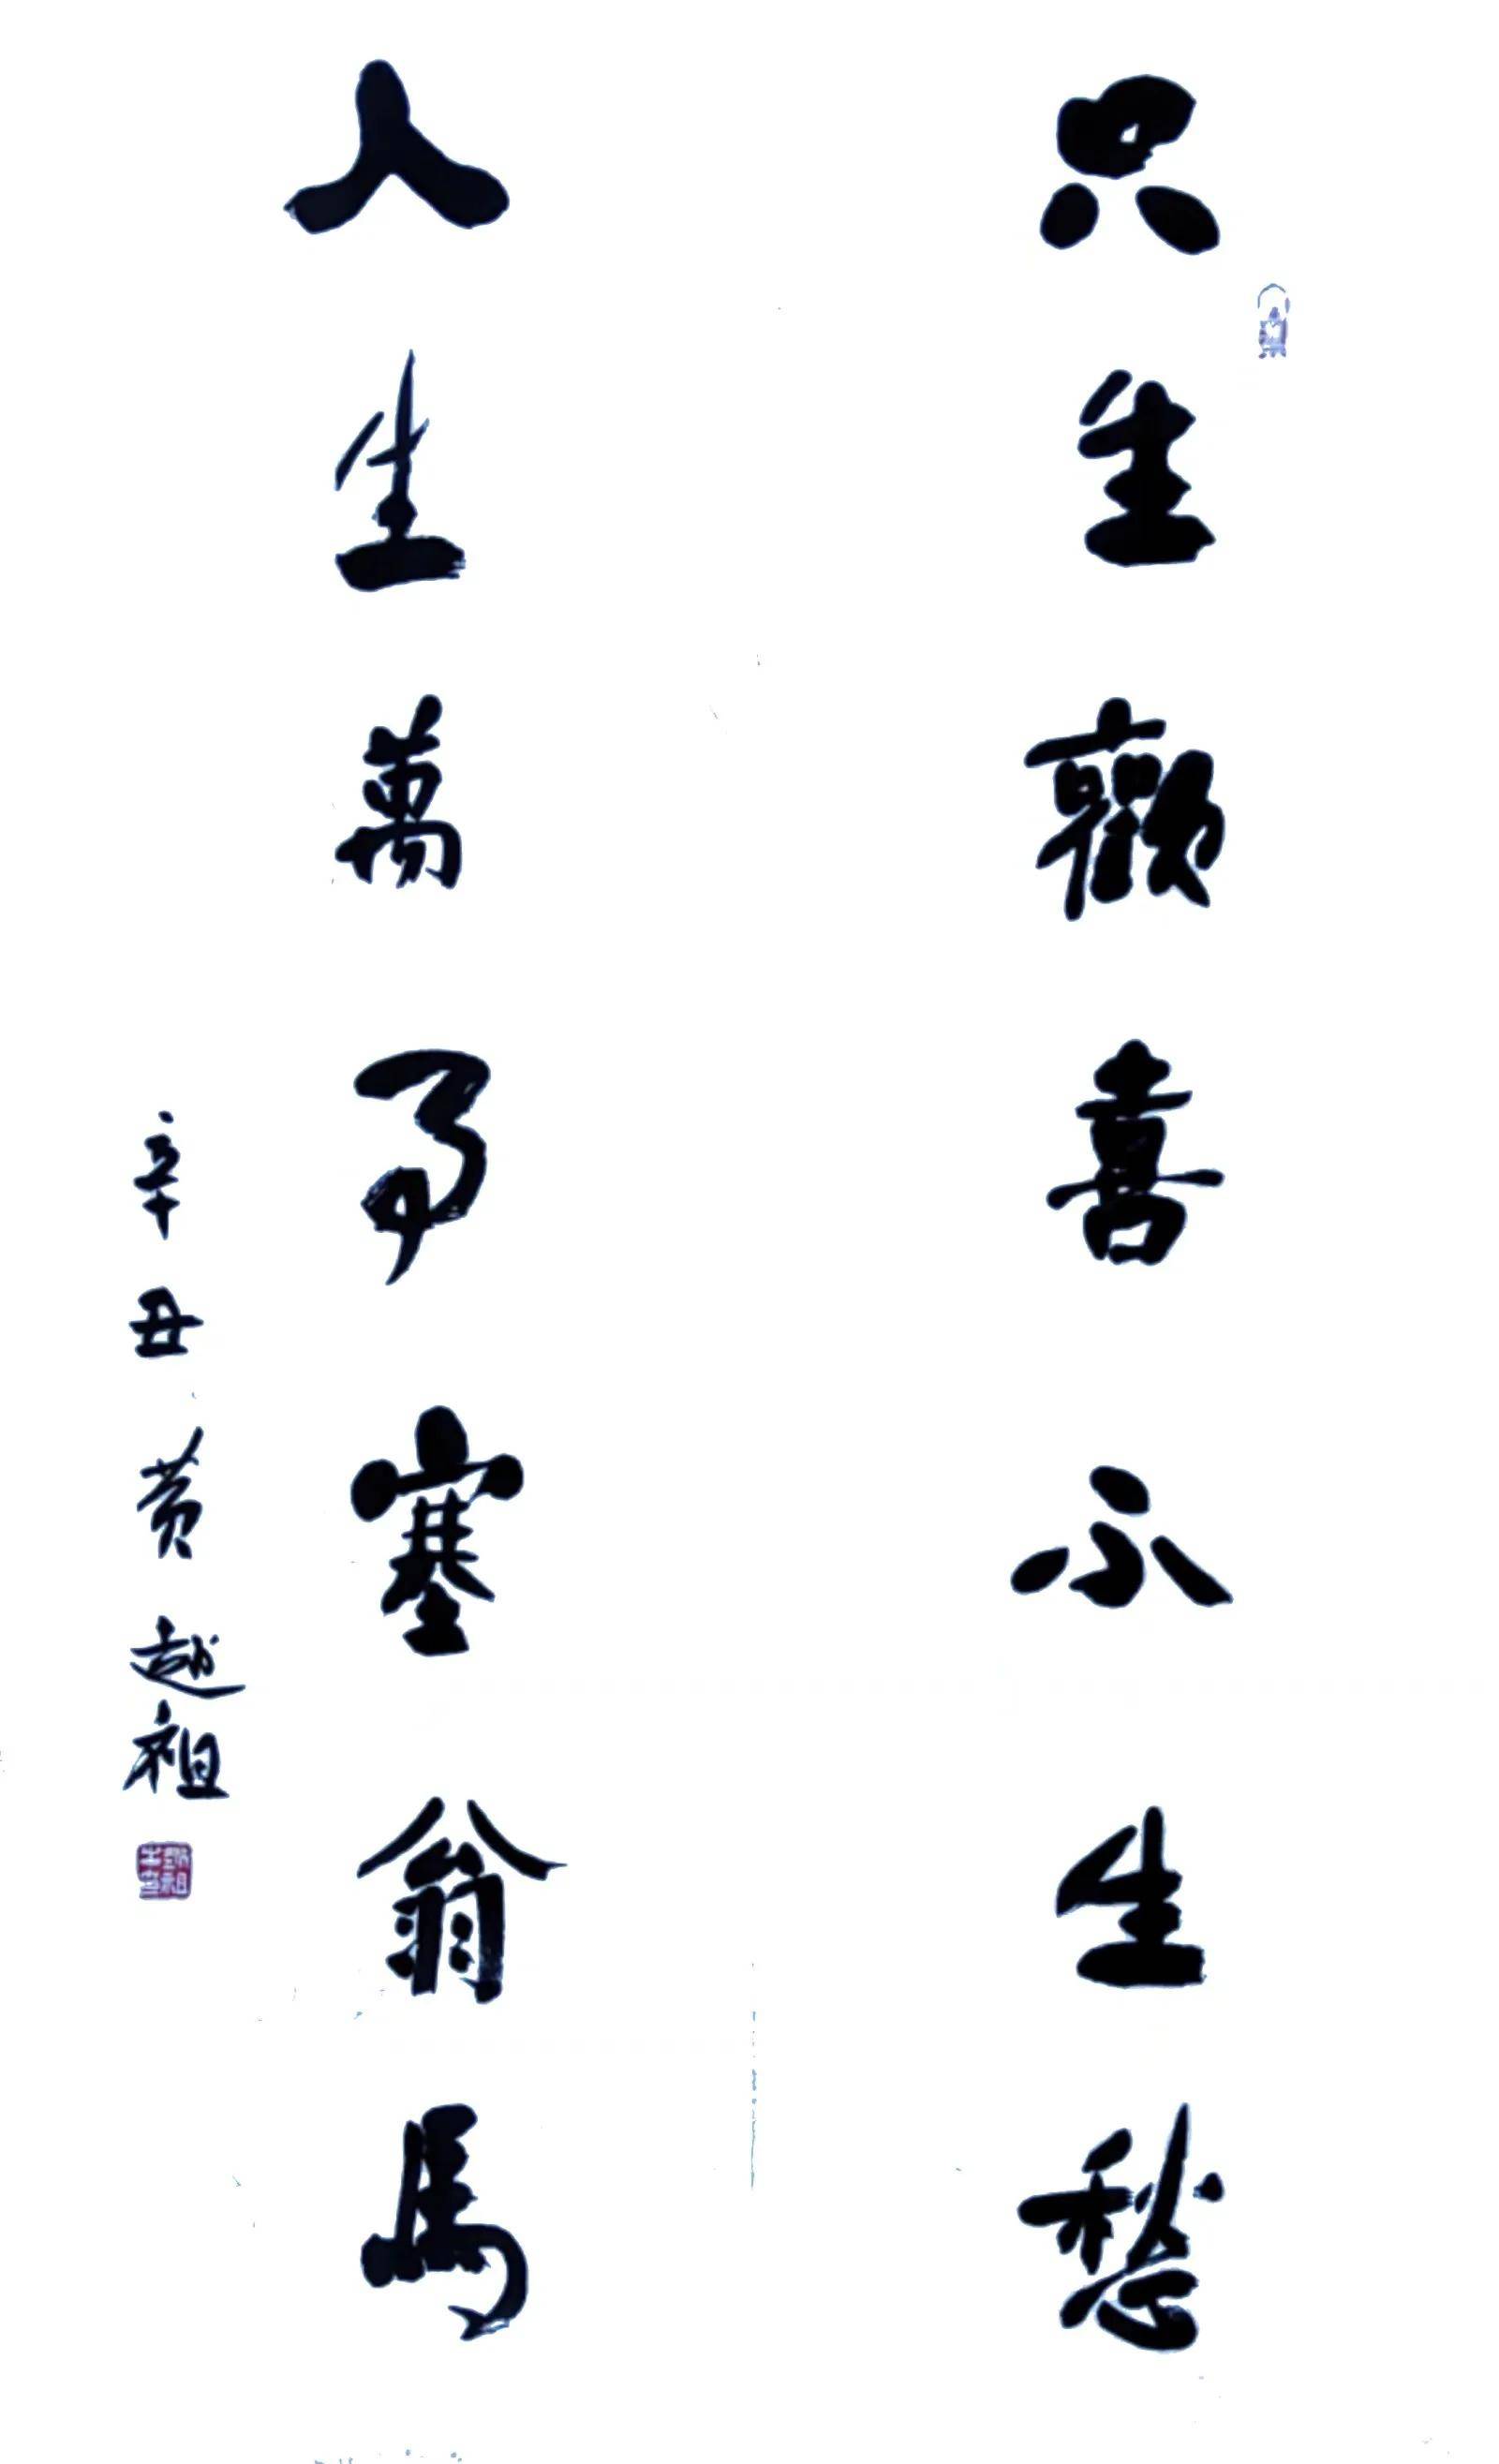 只生歡喜不生愁
人生萬事塞翁馬
辛丑 黄越祖